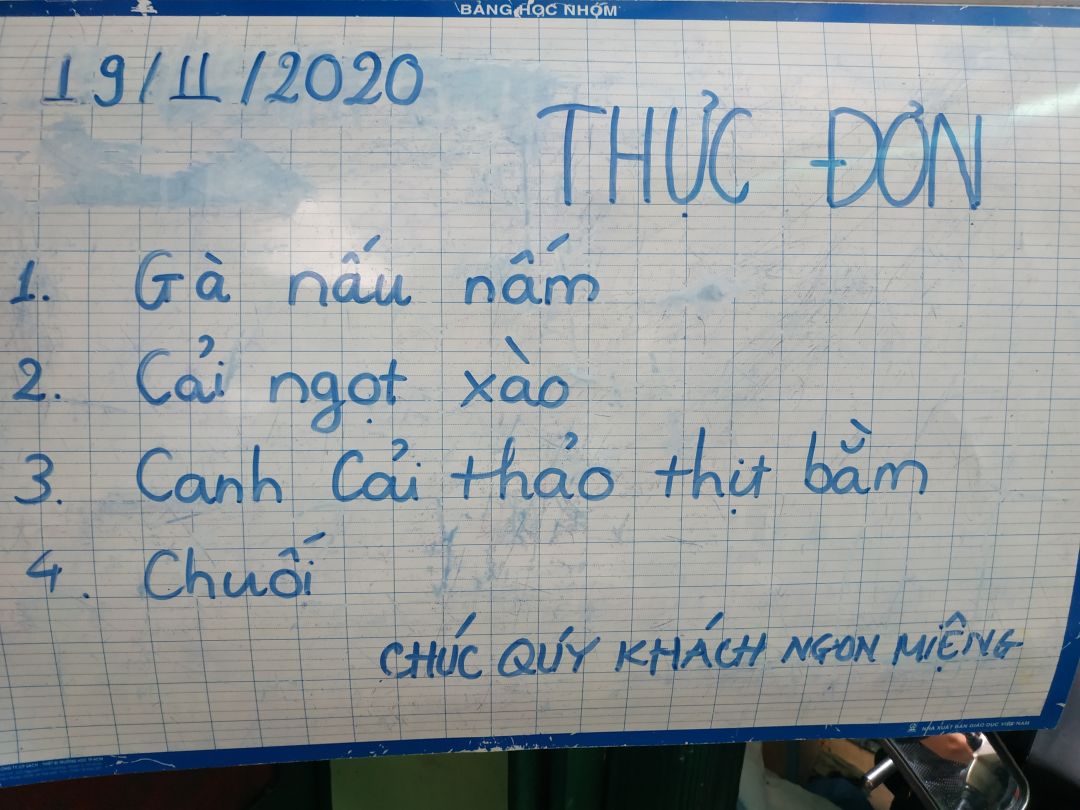 BẢNG HỌC NHÓM
19/11/2020
THỰC ĐƠN
1. Gà nấu nấm
2. Cải ngọt xào
3. Canh Cải thảo thịt bằm
4. Chuối
CHÚC QUÝ KHÁCH NGON MIỆNG
NHÀ XUẤT BẢN GIÁO DỤC VIỆT NAM